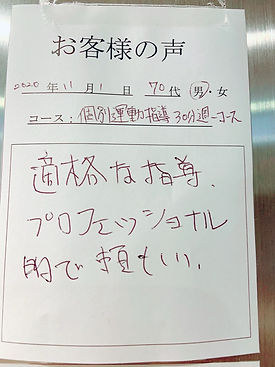 お客様の声
2020 年 11 月 1 日 70代 男・女
コース：個別運動指導 30分週一コース
適格な指導、
プロフェッショナル
的で頼もしい。